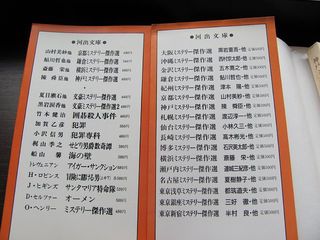 ●河出文庫●
山村美紗他 京都ミステリー傑作選 480円
鮎川哲也他 鎌倉ミステリー傑作選
斎藤 栄他 横浜ミステリー傑作選
陳 舜臣他 神戸ミステリー傑作選
夏目漱石他 文豪ミステリー傑作選
黒岩涙香他 文豪ミステリー傑作選2
竹本健治 囲碁殺人事件
加賀乙彦 犯罪
小沢信男 犯罪専科
梶山季之 せどり男爵数奇譚
船山 馨 海の壁
トレヴェニアン アイガー・サンクション
H・ロビンス 冒険に賭ける男
J・ヒギンズ サンタマリア特命隊
D・セルツァー オーメン
O・ヘンリー ミステリー傑作選
●河出文庫●
大阪ミステリー傑作選
沖縄ミステリー傑作選
金沢ミステリー傑作選 五木寛之・他
信州ミステリー傑作選
紀州ミステリー傑作選 津本 陽・他
京都ミステリー傑作選 山村美紗・他
神戸ミステリー傑作選 陳 舜臣・他
札幌ミステリー傑作選 渡辺淳一・他
仙台ミステリー傑作選
長崎ミステリー傑作選 高木彬光・他
博多ミステリー傑作選 石沢英太郎・他
横浜ミステリー傑作選 斎藤 栄・他
瀬戸内ミステリー傑作選
名古屋ミステリー傑作選 夏樹静子・他
東京浅草ミステリー傑作選 都筑道夫・他
東京銀座ミステリー傑作選 三好 徹・他
東京新宿ミステリー傑作選 半村 良・他